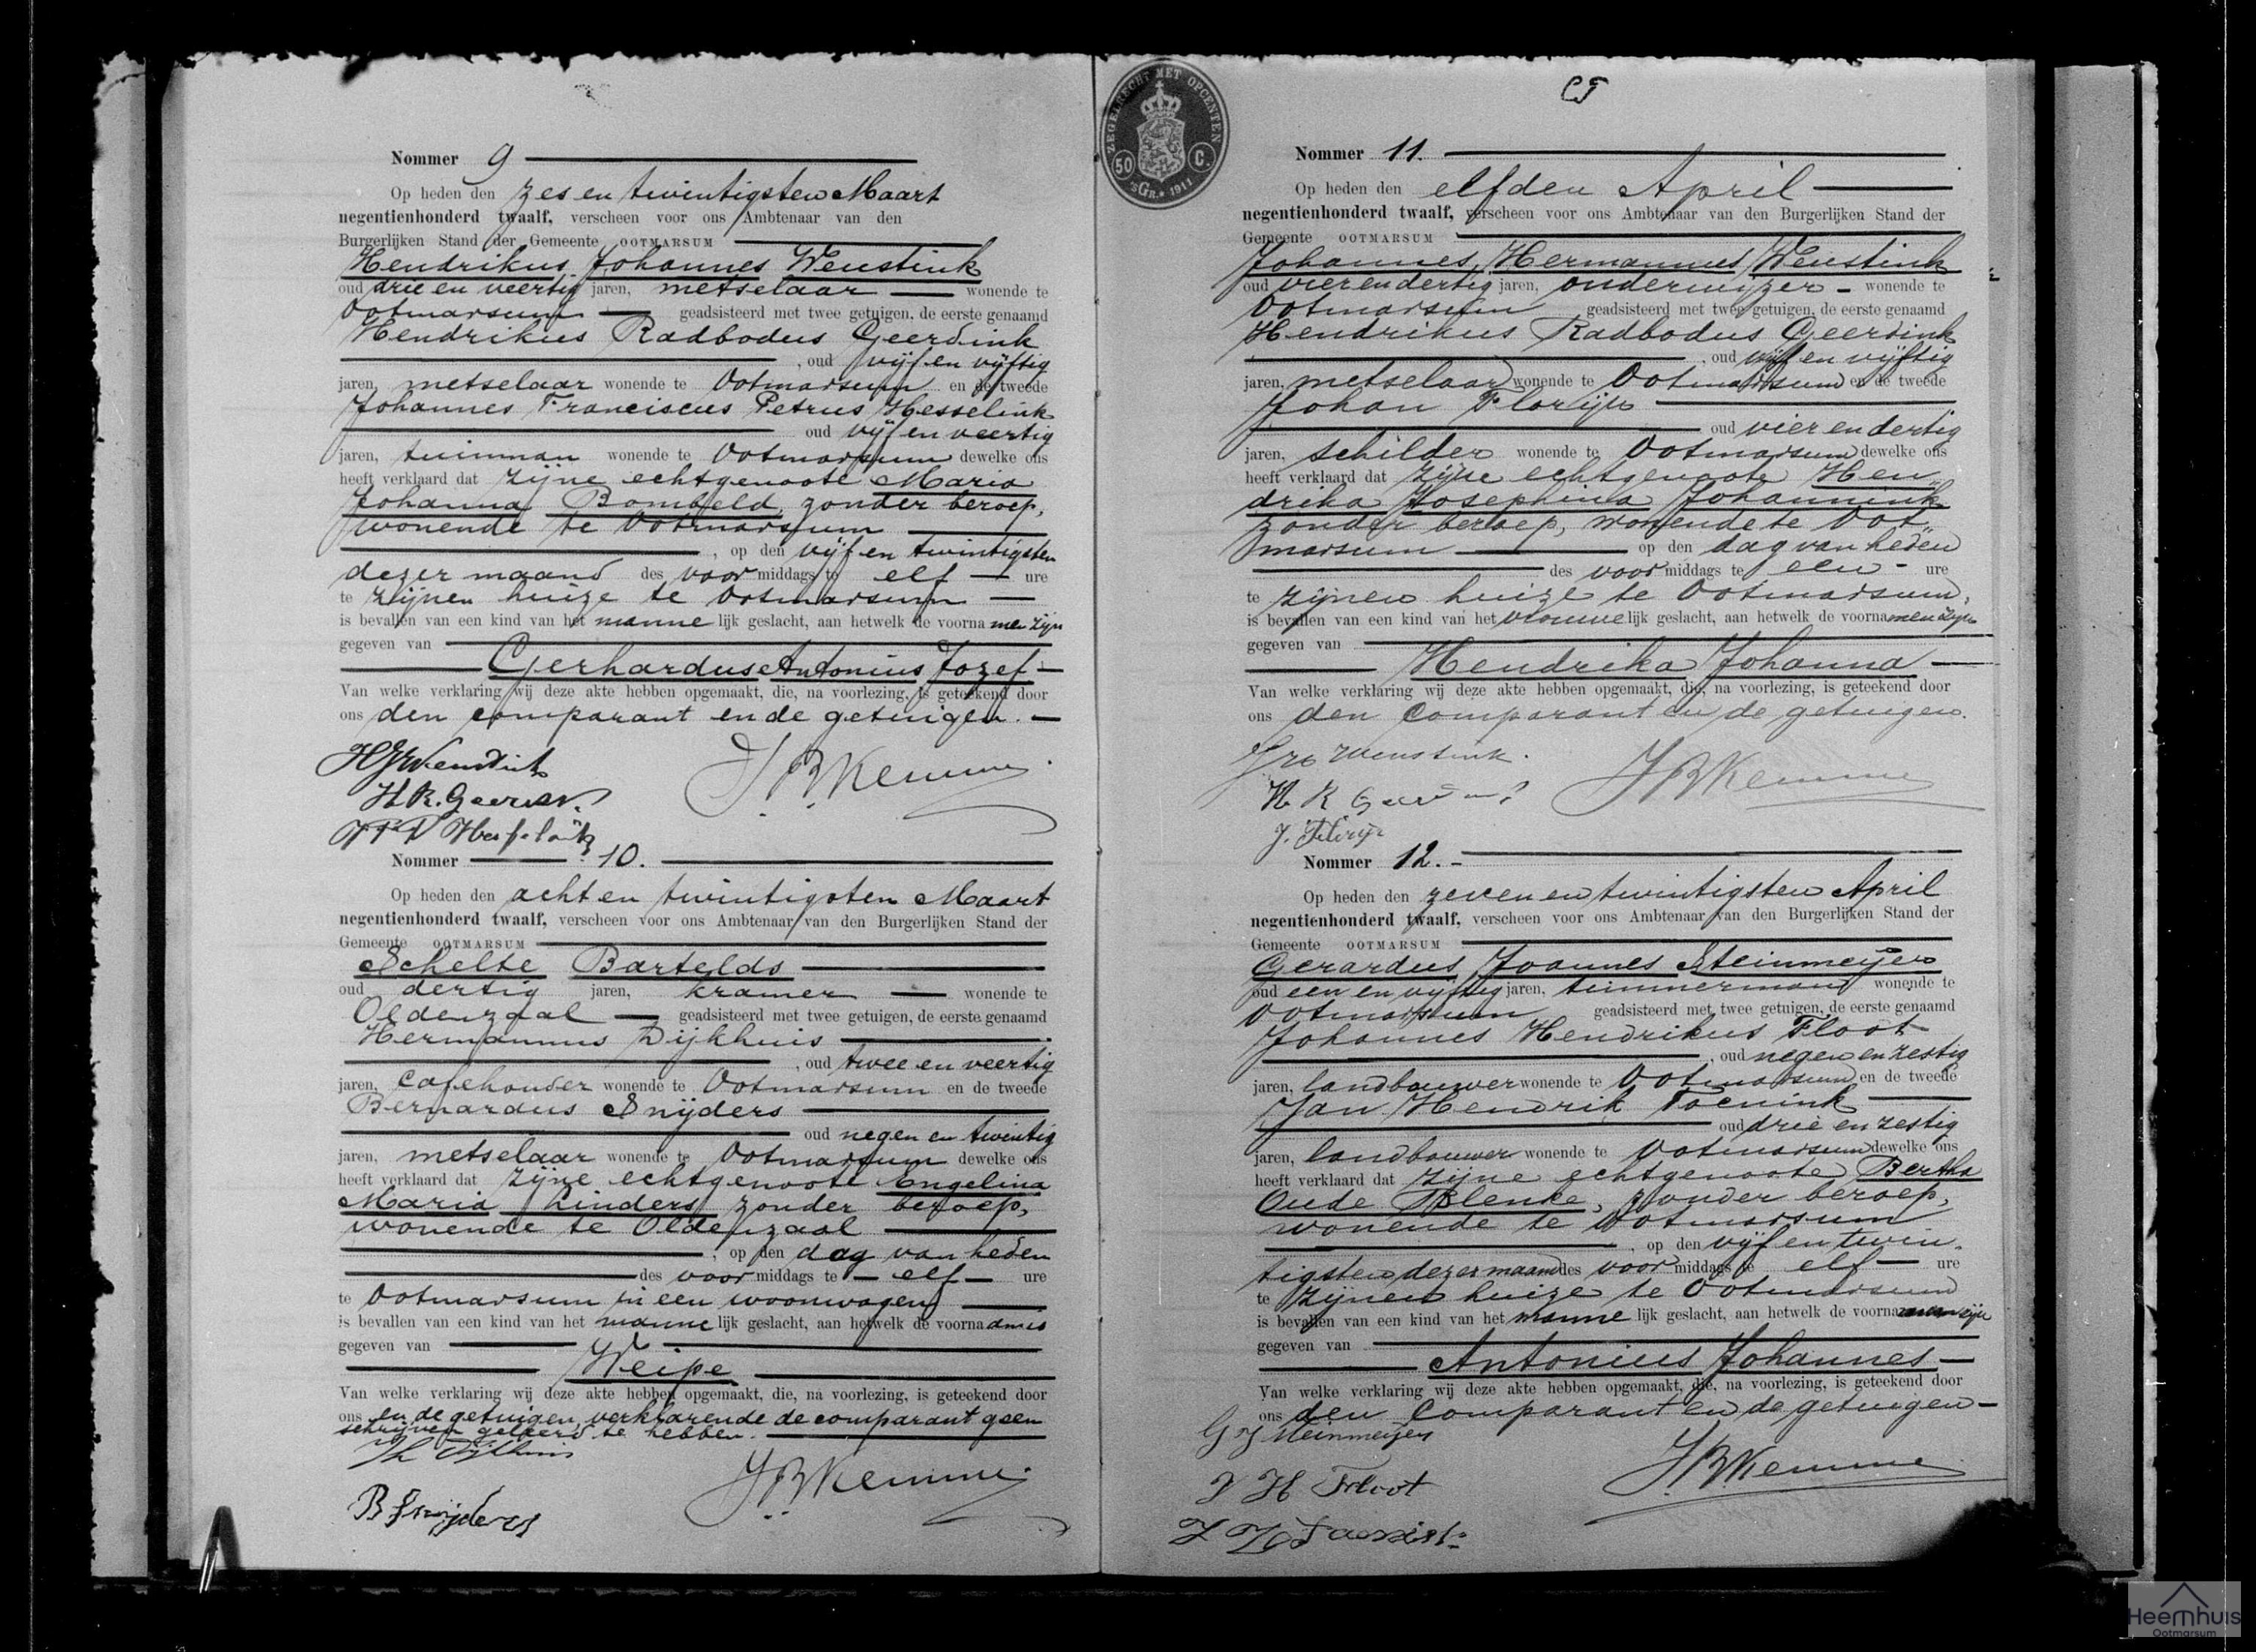 Nommer 9
Op heden den zes en twintigsten Maart
negentienhonderd twaalf, verscheen voor ons Ambtenaar van den
Burgerlijken Stand der Gemeente OOTMARSUM
Hendrikus Johannes Weustink
oud drie en veertig jaren, metselaar wonende te
Ootmarsum geadsisteerd met twee getuigen, de eerste genaamd
Hendrikus Radbodus Geerdink
, oud vijf en vijftig
jaren, metselaar wonende te Ootmarsum en de tweede
Johannes Franciscus Petrus Hesselink
oud vijf en veertig
jaren, tuinman wonende te Ootmarsum dewelke ons
heeft verklaard dat zijne echtgenoote Maria
Johanna Bombeld, zonder beroep,
wonende te Ootmarsum
, op den vijf en twintigsten
dezer maand des voormiddags te elf ure
te zijnen huize te Ootmarsum
is bevallen van een kind van het mannelijk geslacht, aan hetwelk de voornamen zijn
gegeven van
Gerhardus Antonius Jozef
Van welke verklaring wij deze akte hebben opgemaakt, die, na voorlezing, is geteekend door
ons den comparant en de getuigen.
HJWeustink
H.R. Geerdink
JFP Hesselink
JBKemme
Nommer 10.
Op heden den acht en twintigsten Maart
negentienhonderd twaalf, verscheen voor ons Ambtenaar van den Burgerlijken Stand der
Gemeente OOTMARSUM
Schelte Bartelds
oud dertig jaren, kramer wonende te
Oldenzaal geadsisteerd met twee getuigen, de eerste genaamd
Hermannus Dijkhuis
, oud twee en veertig
jaren, caféhouder wonende te Ootmarsum en de tweede
Bernardus Snijders
oud negen en twintig
jaren, metselaar wonende te Ootmarsum dewelke ons
heeft verklaard dat zijne echtgenoote Engelina
Maria Linders zonder beroep,
wonende te Oldenzaal
, op den dag van heden
des voormiddags te elf ure
te Ootmarsum in een woonwagen
is bevallen van een kind van het mannelijk geslacht, aan hetwelk de voornaam is
gegeven van
Weipe
Van welke verklaring wij deze akte hebben opgemaakt, die, na voorlezing, is geteekend door
ons en de getuigen, verklarende de comparant geen
schrijven geleerd te hebben.
JBKemme
B Snijders
ZEGELRECHT MET OPCENTEN
50 C.
'sGR. 1911
Nommer 11.
Op heden den elfden April
negentienhonderd twaalf, verscheen voor ons Ambtenaar van den Burgerlijken Stand der
Gemeente OOTMARSUM
Johannes Hermannus Weustink
oud vier en dertig jaren, onderwijzer wonende te
Ootmarsum geadsisteerd met twee getuigen, de eerste genaamd
Hendrikus Radbodus Geerdink
, oud vijf en vijftig
jaren, metselaar wonende te Ootmarsum en de tweede
Johan Florijn
oud vier en dertig
jaren, schilder wonende te Ootmarsum dewelke ons
heeft verklaard dat zijne echtgenoote Hen
drika Josephina Johannink
zonder beroep, wonende te Oot
marsum op den dag van heden
des voormiddags te een ure
te zijnen huize te Ootmarsum,
is bevallen van een kind van het vrouwelijk geslacht, aan hetwelk de voornamen zijn
gegeven van
Hendrika Johanna
Van welke verklaring wij deze akte hebben opgemaakt, die, na voorlezing, is geteekend door
ons den comparant en de getuigen.
Weustink.
H R Geerdink
J. Florijn
JBKemme
Nommer 12.
Op heden den zeven en twintigsten April
negentienhonderd twaalf, verscheen voor ons Ambtenaar van den Burgerlijken Stand der
Gemeente OOTMARSUM
Gerardus Joannes Steinmeijer
oud een en vijftig jaren, timmerman wonende te
Ootmarsum geadsisteerd met twee getuigen, de eerste genaamd
Johannes Hendrikus Floot
, oud negen en zestig
jaren, landbouwer wonende te Ootmarsum en de tweede
Jan Hendrik Toenink
oud drie en zestig
jaren, landbouwer wonende te Ootmarsum dewelke ons
heeft verklaard dat zijne echtgenoote Bertha
Oude Blenke, zonder beroep,
wonende te Ootmarsum
, op den vijf en twin
tigsten dezer maand des voormiddags te elf ure
te zijnen huize te Ootmarsum
is bevallen van een kind van het mannelijk geslacht, aan hetwelk de voornamen zijn
gegeven van
Antonius Johannes
Van welke verklaring wij deze akte hebben opgemaakt, die, na voorlezing, is geteekend door
ons den comparant en de getuigen
G J Steinmeijer
J H Floot
JBKemme
Heemhuis
Ootmarsum